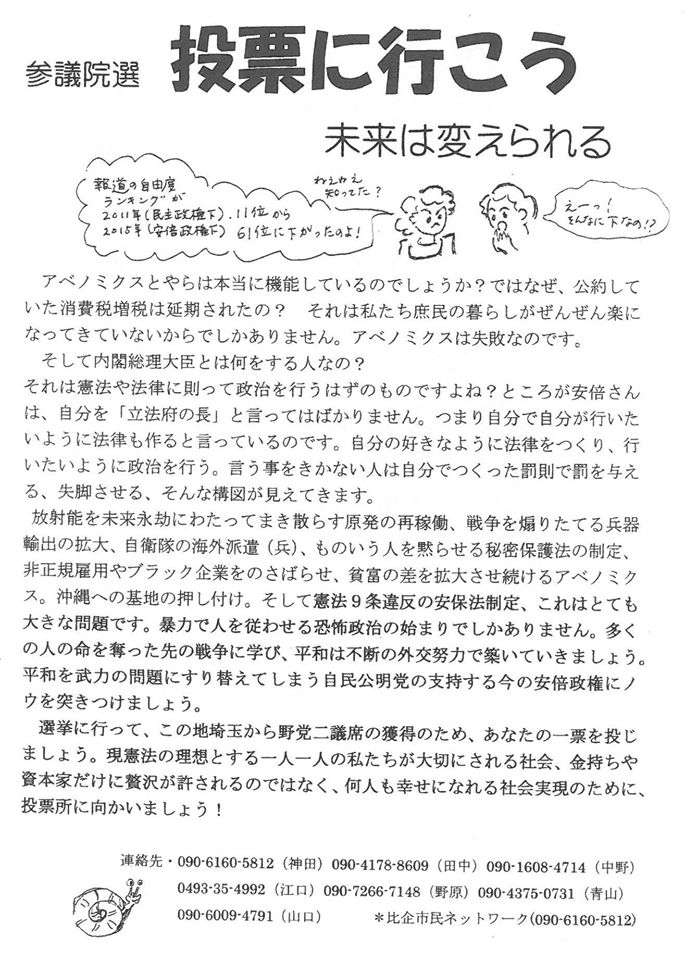 参議院選 投票に行こう
未来は変えられる
報道の自由度
ランキングが
2011年(民主政権下).11位から
2015年(安倍政権下) 61位に下がったのよ!
ねぇねぇ
知ってた?
えーっ!
そんなに下なの!?
アベノミクスとやらは本当に機能しているのでしょうか?ではなぜ、公約して
いた消費税増税は延期されたの? それは私たち庶民の暮らしがぜんぜん楽に
なってきていないからでしかありません。アベノミクスは失敗なのです。
そして内閣総理大臣とは何をする人なの?
それは憲法や法律に則って政治を行うはずのものですよね?ところが安倍さん
は、自分を「立法府の長」と言ってはばかりません。つまり自分で自分が行いた
いように法律も作ると言っているのです。自分の好きなように法律をつくり、行
いたいように政治を行う。言う事をきかない人は自分でつくった罰則で罰を与え
る、失脚させる、そんな構図が見えてきます。
放射能を未来永劫にわたってまき散らす原発の再稼働、戦争を煽りたてる兵器
輸出の拡大、自衛隊の海外派遣(兵)、ものいう人を黙らせる秘密保護法の制定、
非正規雇用やブラック企業をのさばらせ、貧富の差を拡大させ続けるアベノミク
ス。沖縄への基地の押し付け。そして憲法9条違反の安保法制定、これはとても
大きな問題です。暴力で人を従わせる恐怖政治の始まりでしかありません。多く
の人の命を奪った先の戦争に学び、平和は不断の外交努力で築いていきましょう。
平和を武力の問題にすり替えてしまう自民公明党の支持する今の安倍政権にノ
ウを突きつけましょう。
選挙に行って、この地埼玉から野党二議席の獲得のため、あなたの一票を投じ
ましょう。現憲法の理想とする一人一人の私たちが大切にされる社会、金持ちや
資本家だけに贅沢が許されるのではなく、何人も幸せになれる社会実現のために、
投票所に向かいましょう!
連絡先・090-6160-5812(神田)090-4178-8609(田中)090-1608-4714(中野)
0493-35-4992(江口)090-7266-7148(野原)090-4375-0731(青山)
090-6009-4791(山口) *比企市民ネットワーク(090-6160-5812)